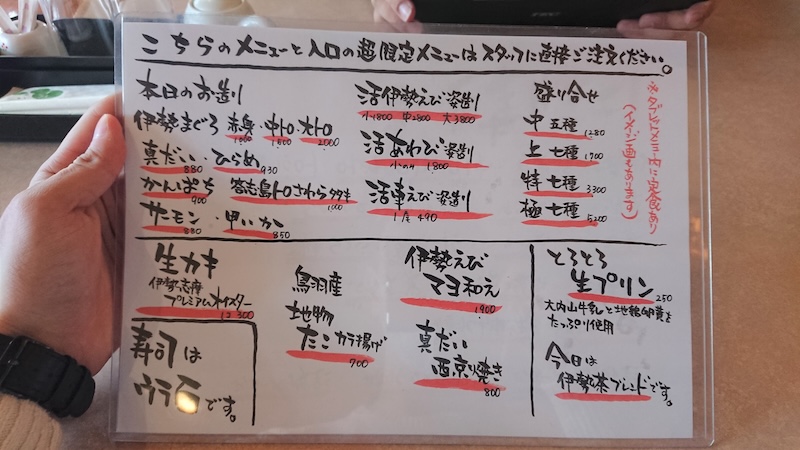 こちらのメニューと入口の超限定メニューはスタッフに直接ご注文ください。
※タブレットメニュー内に定食あり
(イメージ画もあります)
本日のお造り
伊勢まぐろ 赤身・中トロ・大トロ
1000 1500 2000
真だい・ひらめ
880 930
かんぱち 答志島トロさわらタタキ
900 1000
サーモン・甲いか
880 850
活伊勢えび姿造り
小1800 中2800 大3800
活あわび姿造り
小のみ 1800
活車えび姿造り
1尾 490
盛り合せ
中 五種 1280
上 七種 1900
特 七種 3300
極 七種 5200
生カキ
伊勢志摩
プレミアムオイスター
1コ 300
寿司は
ウラ面です。
鳥羽産
地物
たこカラ揚げ
700
伊勢えび
マヨ和え
1900
真だい
西京焼き
800
とろとろ
生プリン 250
大内山牛乳と地鶏卵黄を
たっぷり使用
今日は
伊勢茶ブレンドです。